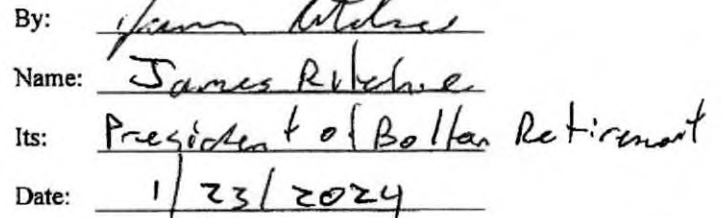 By: James Ritchie
Name: James Ritchie
Its: President of Bolton Retirement
Date: 1/23/2024